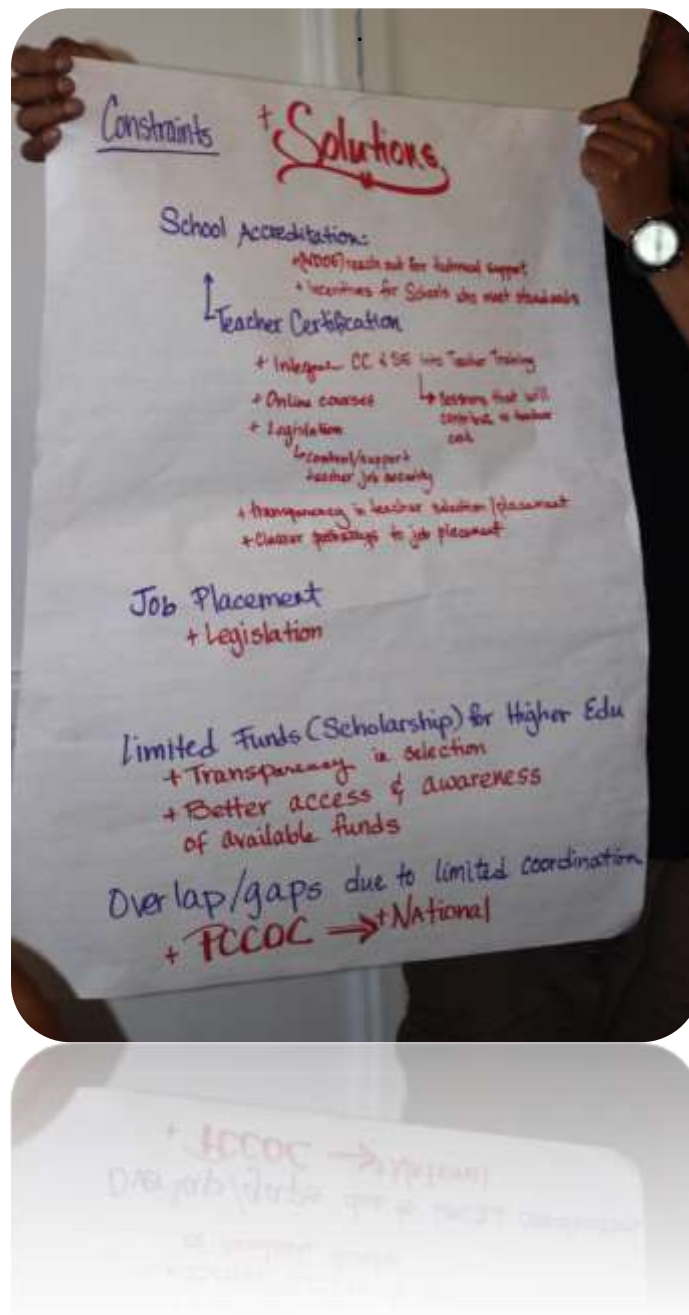 Constraints + Solutions
School Accreditation:
+ (NDOE) reach out for technical support
+ Incentives for Schools who meet standards
Teacher Certification
+ Integrate CC & SE into Teacher Training
+ Online courses
↳ sessions that will
contribute to teacher
cert.
+ Legislation
↳ content/support
teacher job security
+ transparency in teacher selection/placement
+ Clearer pathways to job placement
Job Placement
+ Legislation
Limited Funds (Scholarship) for Higher Edu
+ Transparency in selection
+ Better access & awareness
of available funds
Overlap/gaps due to limited coordination
+ PCCOC → + National